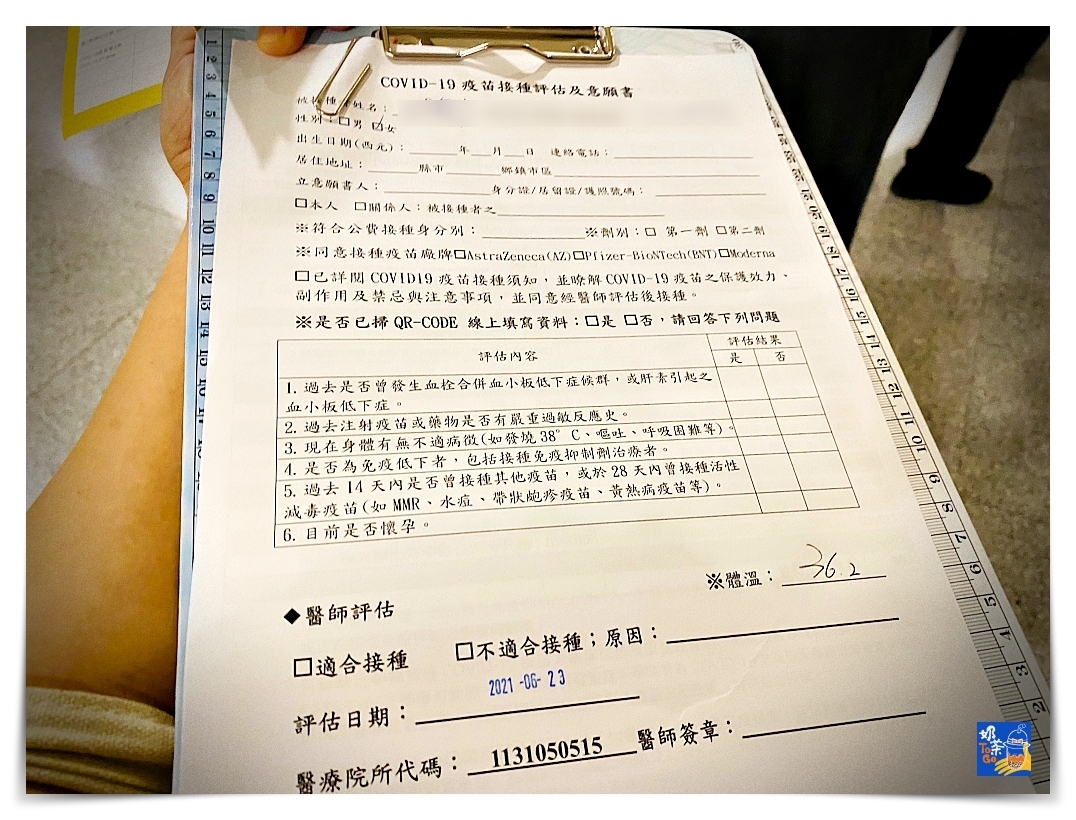 COVID-19 疫苗接種評估及意願書
被接種者姓名：
性別：□男 ☑女
出生日期(西元)：______年___月___日 連絡電話：______
居住地址：______縣市______鄉鎮市區______
立意願書人：______身分證/居留證/護照號碼：______
□本人 □關係人：被接種者之______
※符合公費接種身分別：______※劑別：□ 第一劑 □第二劑
※同意接種疫苗廠牌□AstraZeneca(AZ)□Pfizer-BioNTech(BNT)□Moderna
□已詳閱 COVID19 疫苗接種須知，並瞭解 COVID-19 疫苗之保護效力、
副作用及禁忌與注意事項，並同意經醫師評估後接種。
※是否已掃 QR-CODE 線上填寫資料：□是 □否，請回答下列問題
評估內容 評估結果
是 否
1. 過去是否曾發生血栓合併血小板低下症候群，或肝素引起之
血小板低下症。
2. 過去注射疫苗或藥物是否有嚴重過敏反應史。
3. 現在身體有無不適病徵(如發燒 38°C、嘔吐、呼吸困難等)。
4. 是否為免疫低下者，包括接種免疫抑制劑治療者。
5. 過去 14 天內是否曾接種其他疫苗，或於 28 天內曾接種活性
減毒疫苗(如 MMR、水痘、帶狀皰疹疫苗、黃熱病疫苗等)。
6. 目前是否懷孕。
※體溫：36.2
◆醫師評估
□適合接種 □不適合接種；原因：______
2021-06-23
評估日期：______
醫療院所代碼：1131050515 醫師簽章：______
奶茶
ToGo